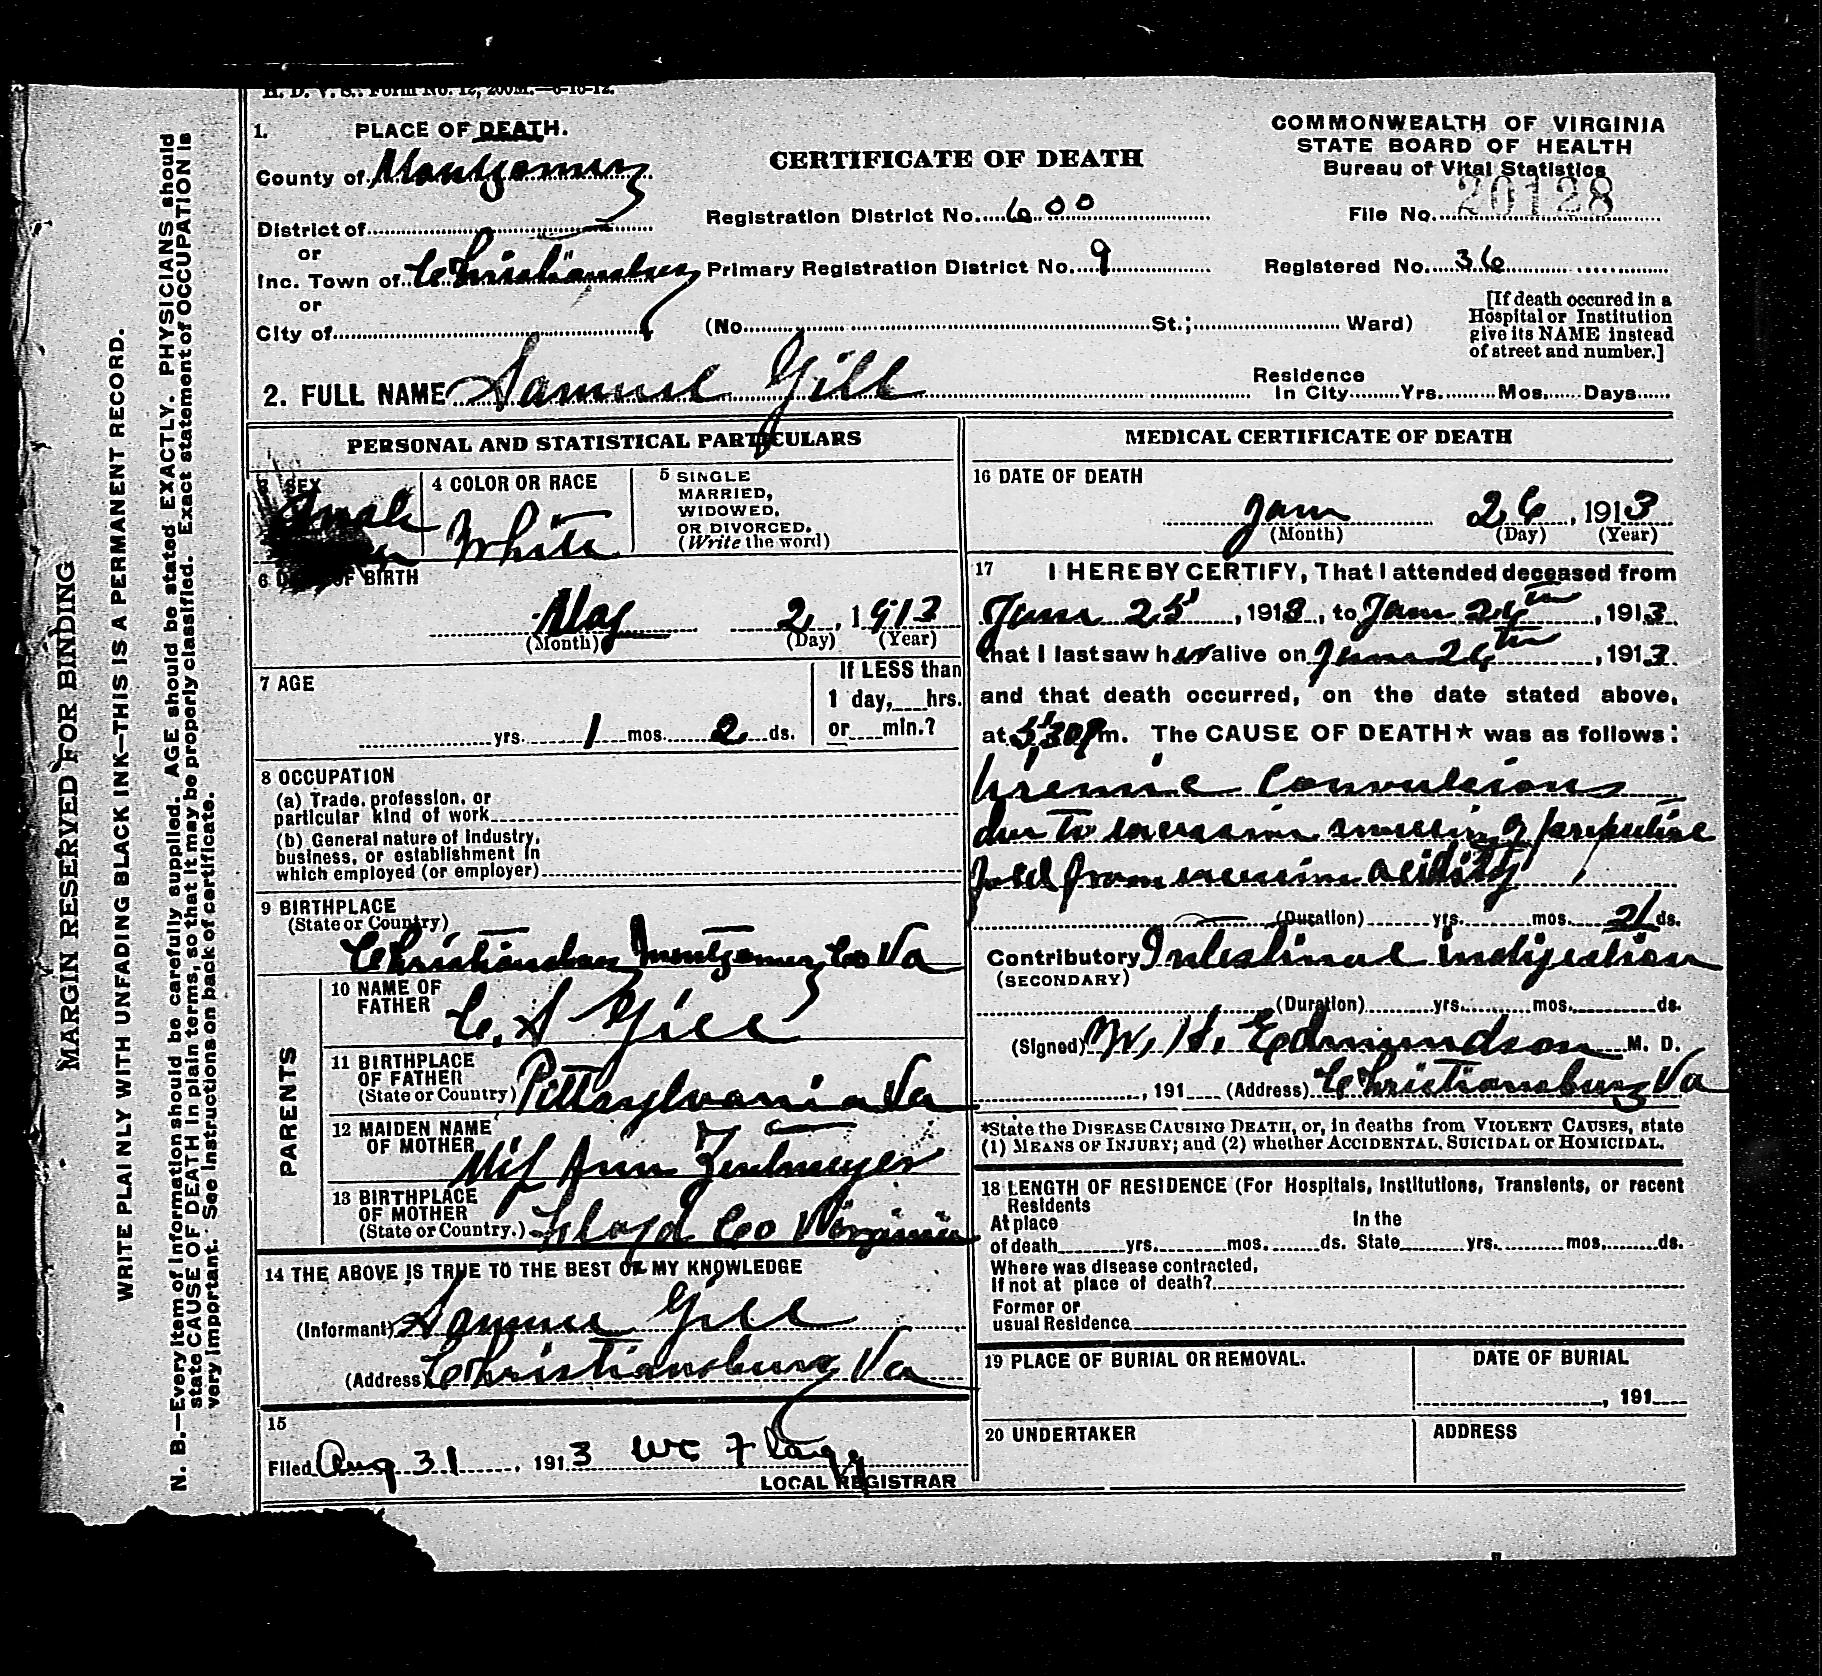 H. D. V. S.: Form No. 12, 200M.—6-10-12.
1. PLACE OF DEATH.
County of Montgomery
District of
or
Inc. Town of Christiansburg
or
City of
CERTIFICATE OF DEATH
Registration District No. 600
Primary Registration District No. 9
(No. St.; Ward)
COMMONWEALTH OF VIRGINIA
STATE BOARD OF HEALTH
Bureau of Vital Statistics
File No. 20128
Registered No. 36
[If death occured in a
Hospital or Institution
give its NAME instead
of street and number.]
2. FULL NAME Samuel Gill
Residence
In City Yrs. Mos. Days
PERSONAL AND STATISTICAL PARTICULARS
3 SEX
male
4 COLOR OR RACE
White
5 SINGLE
MARRIED,
WIDOWED,
OR DIVORCED.
(Write the word)
6 DATE OF BIRTH
May 2, 1913
(Month) (Day) (Year)
7 AGE
yrs. 1 mos. 2 ds.
If LESS than
1 day, hrs.
or min.?
8 OCCUPATION
(a) Trade, profession, or
particular kind of work
(b) General nature of Industry,
business, or establishment in
which employed (or employer)
9 BIRTHPLACE
(State or Country)
Christiansburg Montgomery Co Va
PARENTS
10 NAME OF
FATHER
C. S Gill
11 BIRTHPLACE
OF FATHER
(State or Country)
Pittsylvania Va
12 MAIDEN NAME
OF MOTHER
Ann
13 BIRTHPLACE
OF MOTHER
(State or Country.)
Floyd Co Virginia
14 THE ABOVE IS TRUE TO THE BEST OF MY KNOWLEDGE
(Informant) Samuel Gill
(Address) Christiansburg Va
15
Filed Aug 31, 1913 WC Flagg
LOCAL REGISTRAR
MEDICAL CERTIFICATE OF DEATH
16 DATE OF DEATH
26, 1913
(Month) (Day) (Year)
17 I HEREBY CERTIFY, That I attended deceased from
25, 1913, to 26th, 1913,
that I last saw h alive on 26th, 1913.
and that death occurred, on the date stated above,
at 5:30 Pm. The CAUSE OF DEATH* was as follows:
Uremic Convulsions
due to swelling of
fold from acidity
(Duration) yrs. mos. ds.
Contributory Intestinal indigestion
(SECONDARY)
(Duration) yrs. mos. ds.
(Signed) W. H. Edmundson M. D.
, 191 (Address) Christiansburg Va
*State the DISEASE CAUSING DEATH, or, in deaths from VIOLENT CAUSES, state
(1) MEANS OF INJURY; and (2) whether ACCIDENTAL, SUICIDAL OR HOMICIDAL.
18 LENGTH OF RESIDENCE (For Hospitals, Institutions, Transients, or recent
Residents
At place In the
of death yrs. mos. ds. State yrs. mos. ds.
Where was disease contracted,
If not at place of death?
Former or
usual Residence
19 PLACE OF BURIAL OR REMOVAL.
DATE OF BURIAL
, 191
20 UNDERTAKER
ADDRESS
MARGIN RESERVED FOR BINDING
WRITE PLAINLY WITH UNFADING BLACK INK—THIS IS A PERMANENT RECORD.
N. B.—Every item of Information should be carefully supplied. AGE should be stated EXACTLY. PHYSICIANS should
state CAUSE OF DEATH in plain terms, so that it may be properly classified. Exact statement of OCCUPATION is
very important. See Instructions on back of certificate.